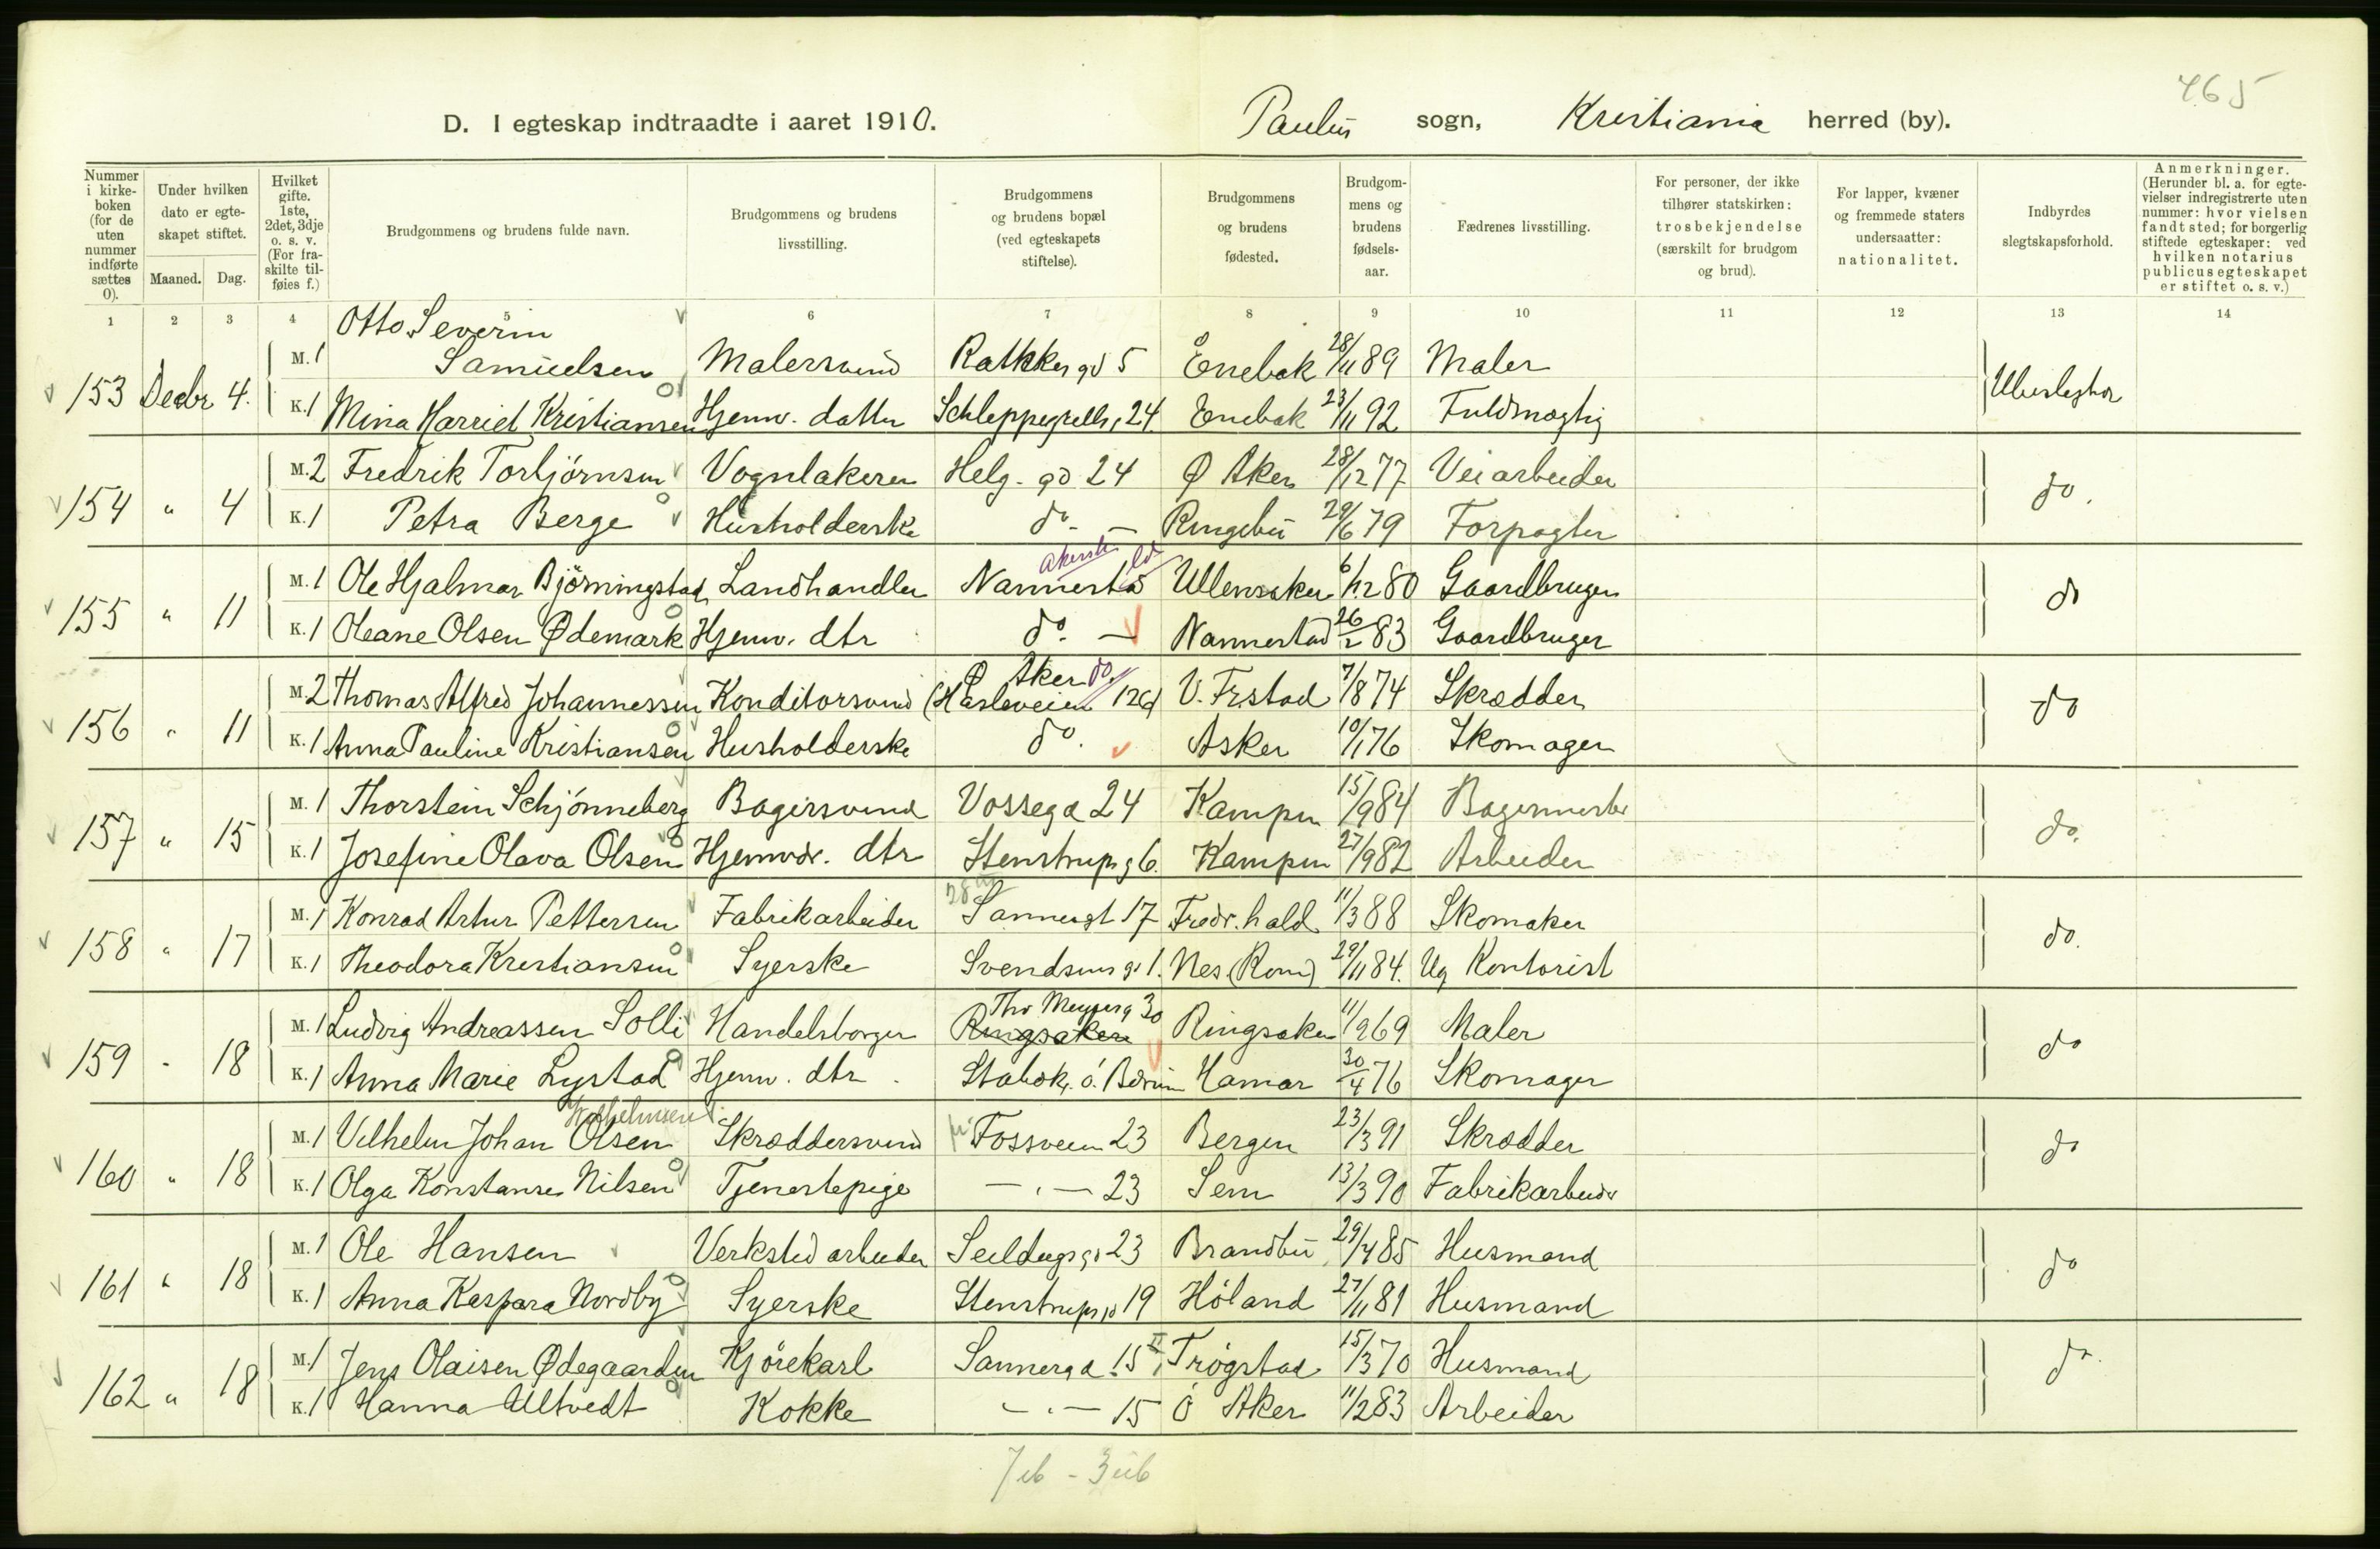 465
D. I egteskap indtraadte i aaret 1910. Paulus sogn, Kristiania herred (by).
Nummer i kirke-boken (for de uten nummer indførte sættes 0). Under hvilken dato er egte-skapet stiftet. Maaned. Dag. Hvilket gifte. 1ste, 2det, 3dje o. s. v. (For fra-skilte til-føies f.) Brudgommens og brudens fulde navn. Brudgommens og brudens livsstilling. Brudgommens og brudens bopæl (ved egteskapets stiftelse). Brudgommens og brudens fødested. Brudgom-mens og brudens fødsels-aar. Fædrenes livsstilling. For personer, der ikke tilhører statskirken: trosbekjendelse (særskilt for brudgom og brud). For lapper, kvæner og fremmede staters undersaatter: nationalitet. Indbyrdes slegtskapsforhold. Anmerkninger. (Herunder bl. a. for egte-vielser indregistrerte uten nummer: hvor vielsen fandt sted; for borgerlig stiftede egteskaper: ved hvilken notarius publicus egteskapet er stiftet o. s. v.)
1 2 3 4 5 6 7 8 9 10 11 12 13 14
Otto Severin
M. 1 Samuelsen Malersvend Ratkkes gd 5 Enebak 28/11 89 Maler
153 Decbr 4. Ubeslegtor
K. 1 Mina Harriet Kristiansen Hjemv. datter Schleppegrells g 24 Enebak 23/11 92 Fuldmægtig
M. 2 Fredrik Torbjörnsen Vognlakerer Helg. gd 24 Ø Aker 28/12 77 Veiarbeider
154 " 4 do.
K. 1 Petra Berge Husholderske do. — Ringebu 29/6 79 Forpagter
Akersh
M. 1 Ole Hjalmar Björningstad Landhandler Nannestad Ullensaker 6/12 80 Gaardbruger
155 " 11 do
K. 1 Oleane Olsen Ødemark Hjemv. dtr do. — Nannestad 26/2 83 Gaardbruger
Ø Aker do.
M. 2 Thomas Alfred Johannessen Konditorsvend (Hasleveien 126) V. Frstad 7/8 74 Skrædder
156 " 11 do
K. 1 Anna Pauline Kristiansen Husholderske do. Asker 10/1 76 Skomager
M. 1 Thorstein Schjönneberg Bagersvend Vossegd 24 Kampen 15/9 84 Bagermester
157 " 15 do.
K. 1 Josefine Olava Olsen Hjemvær. dtr Stenstrups g 6. Kampen 27/9 82 Arbeider
M. 1 Konrad Artur Pettersen Fabrikarbeider Sannergt 17 Fredr.hald 11/3 88 Skomaker
158 " 17 do.
K. 1 Theodora Kristiansen Syerske Svendsens g 1. Nes (Rom) 29/11 84. Ug Kontorist
Thv Meyers g 30
M. 1 Ludvig Andreassen Solli Handelsborger Ringsaker Ringsaker 11/9 69 Maler
159 - 18 do
K. 1 Anna Marie Lystad Hjemv. dtr. Stabæk. ó. Bærum Hamar 30/4 76 Skomager
Wilhelmsen
M. 1 Vilhelm Johan Olsen Skræddersvend Fossveien 23 Bergen 23/3 91 Skrædder
160 " 18 do
K. 1 Olga Konstanse Nilsen Tjenestepige — " — 23 Sem 13/3 90 Fabrikarbeider
M. 1 Ole Hansen Verkstedarbeider Seildugsgd 23 Brandbu 29/4 85 Husmand
161 " 18 do
K. 1 Anna Kaspara Nordby Syerske Stenstrups gd 19 Höland 27/11 81 Husmand
M. 1 Jens Olaisen Ødegaarden Kjörekarl Sannergd. 15 II Trögstad 15/3 70 Husmand
162 " 18 do.
K. 1 Hanna Ultvedt Kokke — " — 15 Ö Aker 11/2 83 Arbeider
7 ib - 3 uib